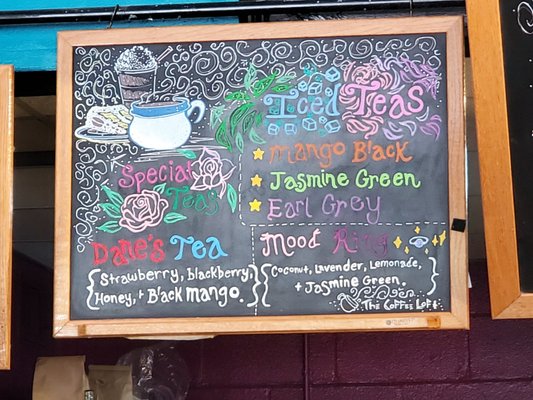 Iced Teas
Mango Black
Jasmine Green
Earl Grey
Special
Teas
Dane's Tea
{Strawberry, blackberry,
Honey, + Black mango.}
Mood Ring
{Coconut, Lavender, Lemonade,
+ Jasmine Green.}
The Coffee Loft